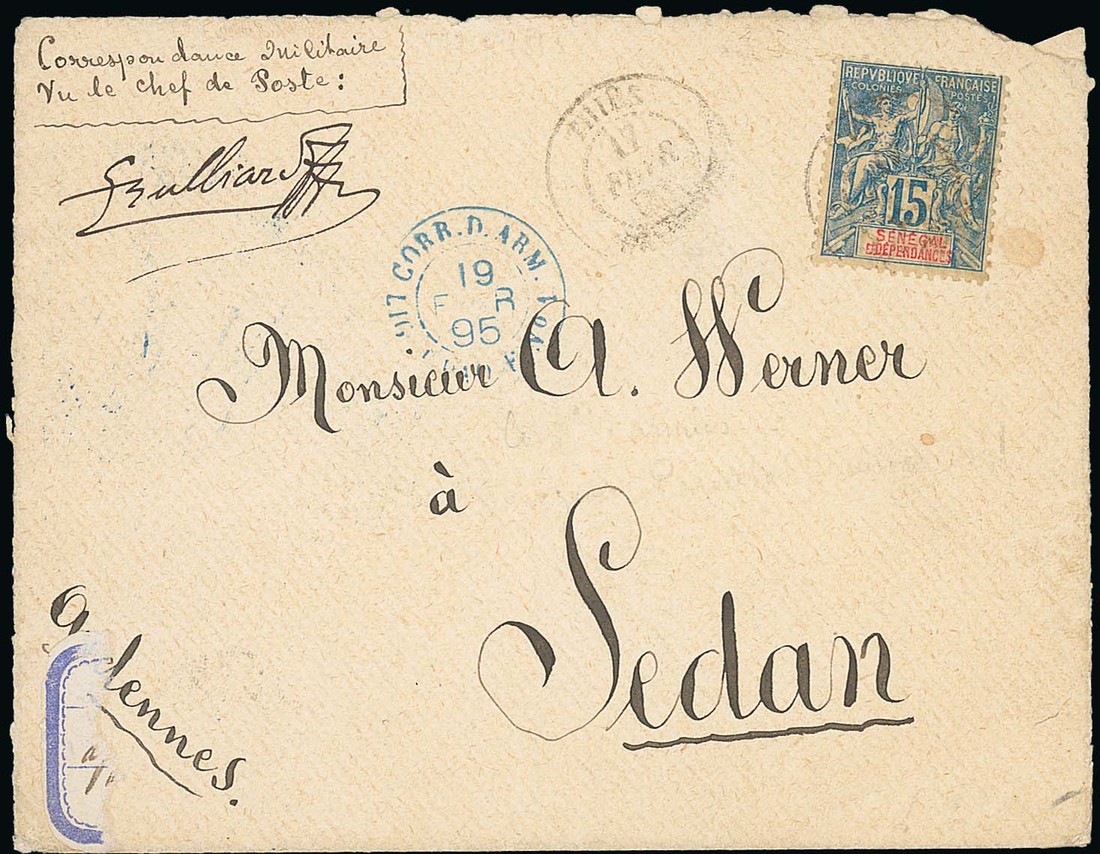 Correspondance Militaire
Vu le Chef de Poste:
REPVBLIQUE FRANÇAISE
COLONIES POSTES
15
SÉNÉGAL
ET DÉPENDANCES
THIES
17
CORR.D.ARM.
19
F R
95
Monsieur A. Werner
à
Sedan
Ardennes.